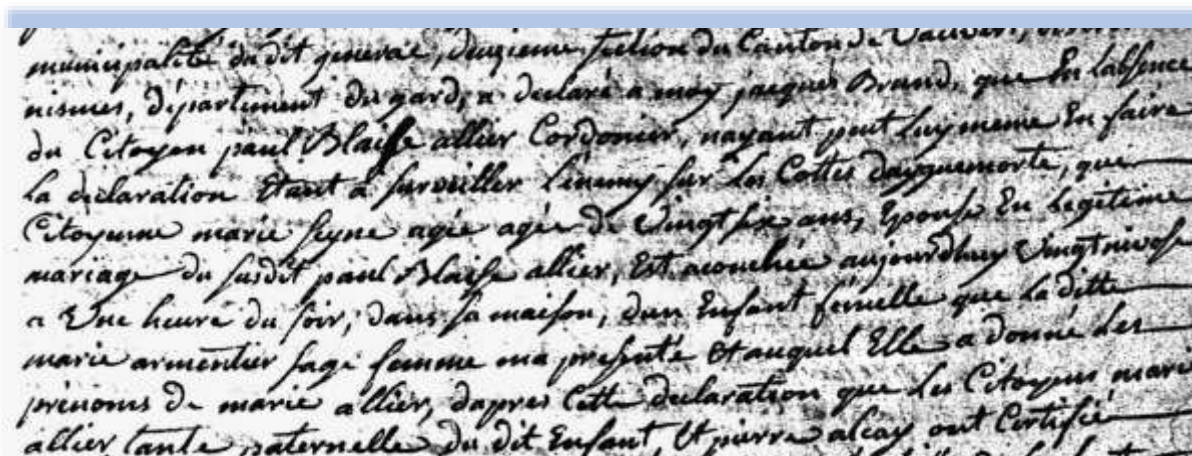 municipalité du dit generac, deuzieme section du Canton de Vauvert,
nismes, département du gard, a declaré a moy jacques Brund, que En labsence
du Citoyen paul Blaise allier Cordonier, nayant peut Luy meme En faire
La declaration Etant a surveiller L'enemy sur Les Cottes dayguemorte, que
Citoyenne marie seyne agée agée de Vingt six ans, Epouse En Legitime
mariage du susdit paul Blaise allier, Est acouchée aujourdhuy Vingt nivose
a Une heure du soir, dans sa maison, dun Enfant femelle que La ditte
marie armentier sage femme ma presenté Et auquel Elle a donné Les
prenoms de marie allier, dapres Cette declaration que Les Citoyens marie
allier tante paternelle du dit Enfant, Et pierre alcay ont Certifié